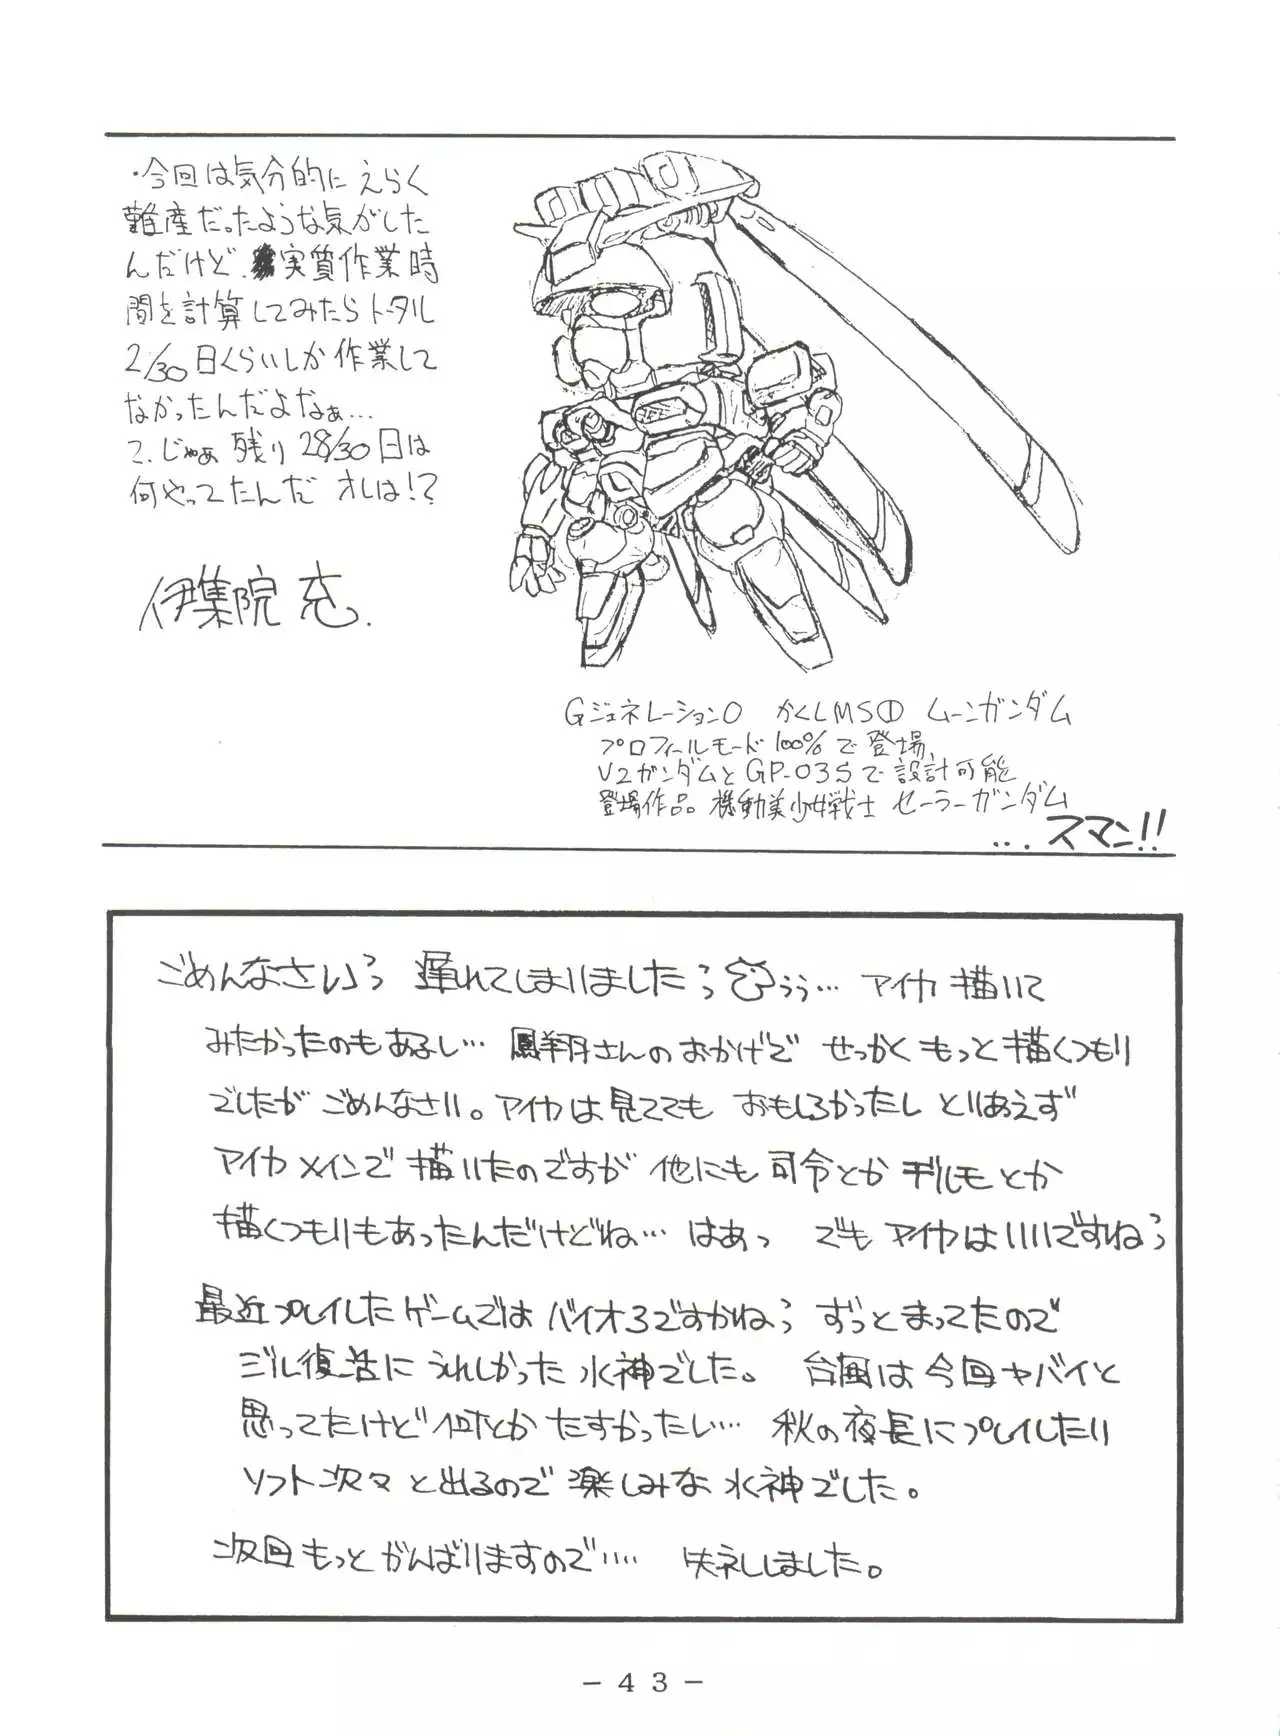 ・今回は気分的にえらく
難産だったような気がした
んだけど、実質作業時
間を計算してみたらトータル
2/30日くらいしか作業して
なかったんだよなぁ…
で、じゃぁ残り28/30日は
何やってたんだオレは!?
伊集院 充.
Gジェネレーション0 かくしMS① ムーンガンダム
プロフィールモード100%で登場、
V2ガンダムとGP-03Sで設計可能
登場作品 機動美少女戦士 セーラーガンダム
...スマン!!
ごめんなさいっっ 遅れてしまいましたっ ぅぅ… アイカ描いて
みたかったのもあるし… 鳳翔さんのおかげで せっかくもっと描くつもり
でしたが ごめんなさい。アイカは見ててもおもしろかったし とりあえず
アイカメインで描いたのですが 他にも司令とかデルモとか
描くつもりもあったんだけどね… はあっ でもアイカはいいですねぅ
最近プレイしたゲームではバイオ3ですかねぅ ずっとまってたので
ジル復活にうれしかった水神でした。 台風は今回ヤバイと
思ってたけど何とかたすかったし… 秋の夜長にプレイしたい
ソフト次々と出るので楽しみな水神でした。
次回もっとがんばりますので…… 失礼しました。
- 43 -